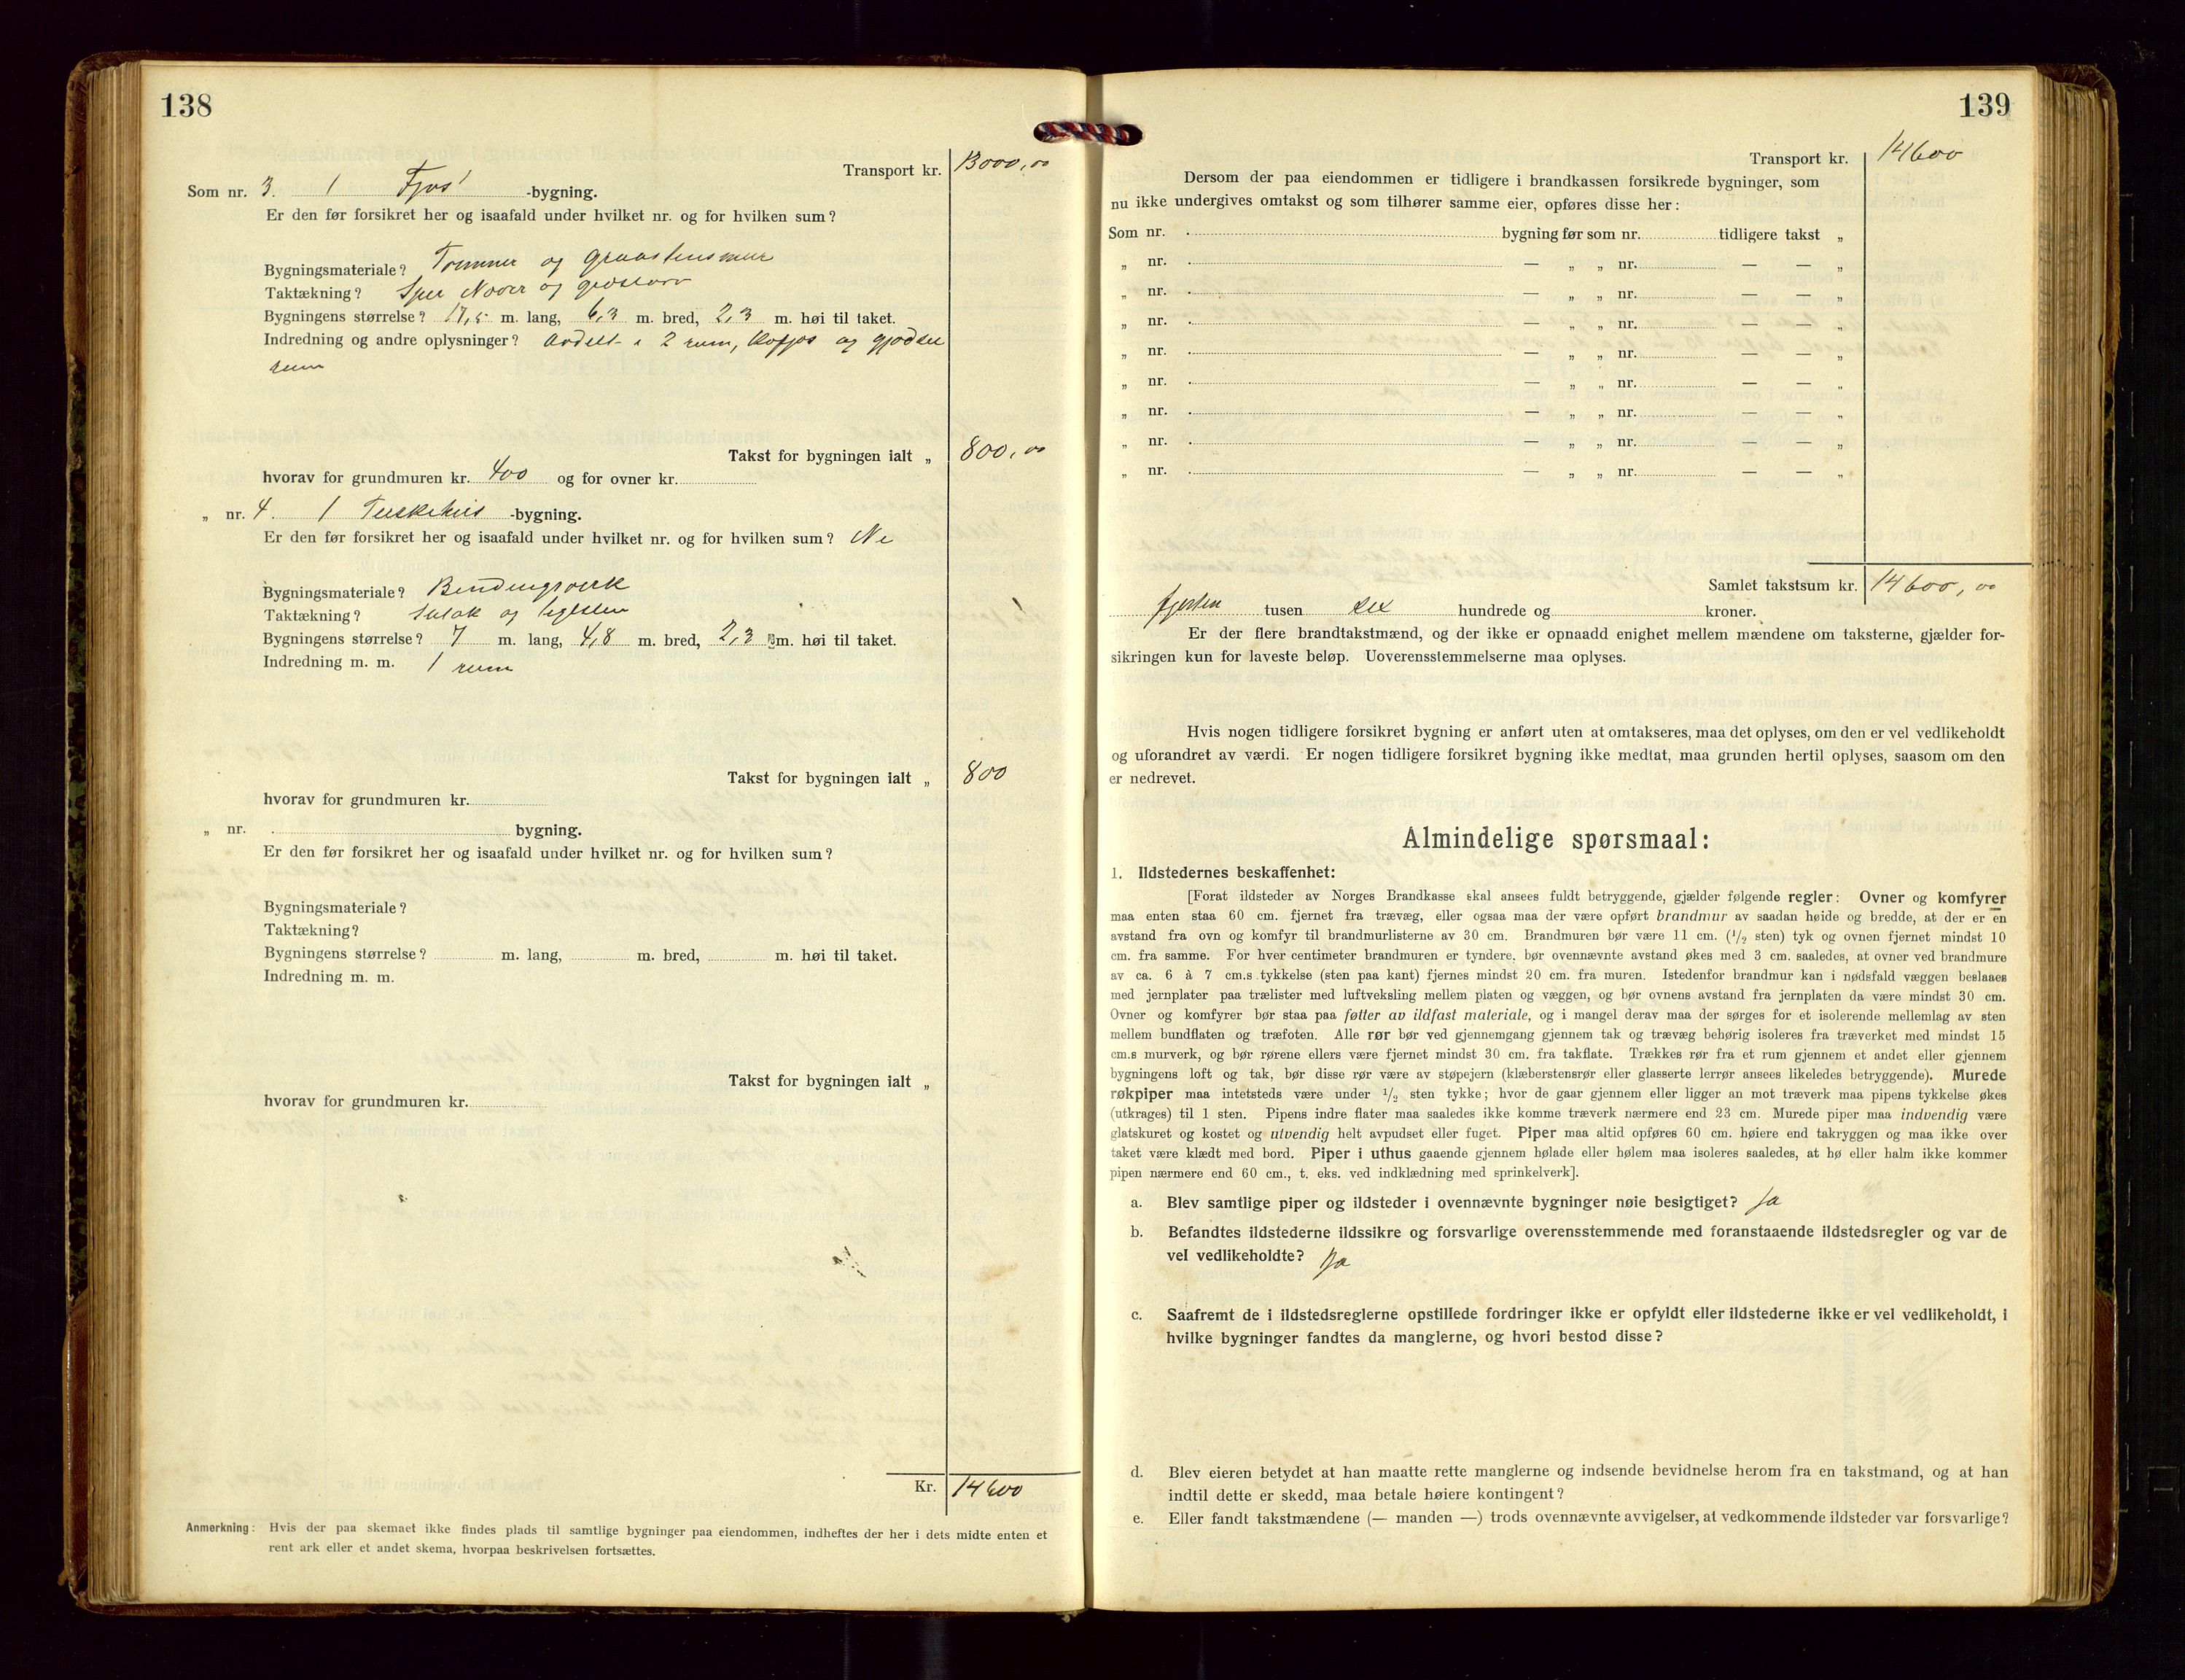 138
Transport kr. 13000,00
Som nr. 3. 1 Fjøs -bygning.
Er den før forsikret her og isaafald under hvilket nr. og for hvilken sum?
Bygningsmateriale? Tømmer og graastensmur
Taktækning? Sper Næver og græstorv
Bygningens størrelse? 17,5 m. lang, 6,3 m. bred, 2,3 m. høi til taket.
Indredning og andre oplysninger? Avdelt i 2 rum, og gjødsel
rum
Takst for bygningen ialt „ 800,00
hvorav for grundmuren kr. 400 og for ovner kr.
„ nr. 4. 1 -bygning.
Er den før forsikret her og isaafald under hvilket nr. og for hvilken sum? Ne
Bygningsmateriale? Bindingsverk
Taktækning? Sutak og teglsten
Bygningens størrelse? 7 m. lang, 4,8 m. bred, 2,3 m. høi til taket.
Indredning m. m. 1 rum
Takst for bygningen ialt „ 800
hvorav for grundmuren kr.
„ nr. bygning.
Er den før forsikret her og isaafald under hvilket nr. og for hvilken sum?
Bygningsmateriale?
Taktækning?
Bygningens størrelse? m. lang, m. bred, m. høi til taket.
Indredning m. m.
Takst for bygningen ialt „
hvorav for grundmuren kr.
Kr. 14600
Anmerkning: Hvis der paa skemaet ikke findes plads til samtlige bygninger paa eiendommen, indheftes der her i dets midte enten et
rent ark eller et andet skema, hvorpaa beskrivelsen fortsættes.
139
Transport kr. 14600
Dersom der paa eiendommen er tidligere i brandkassen forsikrede bygninger, som
nu ikke undergives omtakst og som tilhører samme eier, opføres disse her:
Som nr. bygning før som nr. tidligere takst „
„ nr. — „ „ nr. — — „
„ nr. — „ „ nr. — — „
„ nr. — „ „ nr. — — „
„ nr. — „ „ nr. — — „
„ nr. — „ „ nr. — — „
„ nr. — „ „ nr. — — „
„ nr. — „ „ nr. — — „
„ nr. — „ „ nr. — — „
Samlet takstsum kr. 14600,00
fjorten tusen sex hundrede og kroner.
Er der flere brandtakstmænd, og der ikke er opnaadd enighet mellem mændene om taksterne, gjælder for-
sikringen kun for laveste beløp. Uoverensstemmelserne maa oplyses.
Hvis nogen tidligere forsikret bygning er anført uten at omtakseres, maa det oplyses, om den er vel vedlikeholdt
og uforandret av værdi. Er nogen tidligere forsikret bygning ikke medtat, maa grunden hertil oplyses, saasom om den
er nedrevet.
Almindelige spørsmaal:
1. Ildstedernes beskaffenhet:
[Forat ildsteder av Norges Brandkasse skal ansees fuldt betryggende, gjælder følgende regler: Ovner og komfyrer
maa enten staa 60 cm. fjernet fra trævæg, eller ogsaa maa der være opført brandmur av saadan høide og bredde, at der er en
avstand fra ovn og komfyr til brandmurlisterne av 30 cm. Brandmuren bør være 11 cm. (1/2 sten) tyk og ovnen fjernet mindst 10
cm. fra samme. For hver centimeter brandmuren er tyndere, bør ovennævnte avstand økes med 3 cm. saaledes, at ovner ved brandmure
av ca. 6 à 7 cm.s tykkelse (sten paa kant) fjernes mindst 20 cm. fra muren. Istedenfor brandmur kan i nødsfald væggen beslaaes
med jernplater paa trælister med luftveksling mellem platen og væggen, og bør ovnens avstand fra jernplaten da være mindst 30 cm.
Ovner og komfyrer bør staa paa føtter av ildfast materiale, og i mangel derav maa der sørges for et isolerende mellemlag av sten
mellem bundflaten og træfoten. Alle rør bør ved gjennemgang gjennem tak og trævæg behørig isoleres fra træverket med mindst 15
cm.s murverk, og bør rørene ellers være fjernet mindst 30 cm. fra takflate. Trækkes rør fra et rum gjennem et andet eller gjennem
bygningens loft og tak, bør disse rør være av støpejern (klæberstensrør eller glasserte lerrør ansees likeledes betryggende). Murede
røkpiper maa intetsteds være under 1/2 sten tykke; hvor de gaar gjennem eller ligger an mot træverk maa pipens tykkelse økes
(utkrages) til 1 sten. Pipens indre flater maa saaledes ikke komme træverk nærmere end 23 cm. Murede piper maa indvendig være
glatskuret og kostet og utvendig helt avpudset eller fuget. Piper maa altid opføres 60 cm. høiere end takryggen og maa ikke over
taket være klædt med bord. Piper i uthus gaaende gjennem hølade eller hølem maa isoleres saaledes, at hø eller halm ikke kommer
pipen nærmere end 60 cm., t. eks. ved indklædning med sprinkelverk].
a. Blev samtlige piper og ildsteder i ovennævnte bygninger nøie besigtiget? Ja
b. Befandtes ildstederne ildssikre og forsvarlige overensstemmende med foranstaaende ildstedsregler og var de
vel vedlikeholdte? Ja
c. Saafremt de i ildstedsreglerne opstillede fordringer ikke er opfyldt eller ildstederne ikke er vel vedlikeholdt, i
hvilke bygninger fandtes da manglerne, og hvori bestod disse?
d. Blev eieren betydet at han maatte rette manglerne og indsende bevidnelse herom fra en takstmand, og at han
indtil dette er skedd, maa betale høiere kontingent?
e. Eller fandt takstmændene (— manden —) trods ovennævnte avvigelser, at vedkommende ildsteder var forsvarlige?